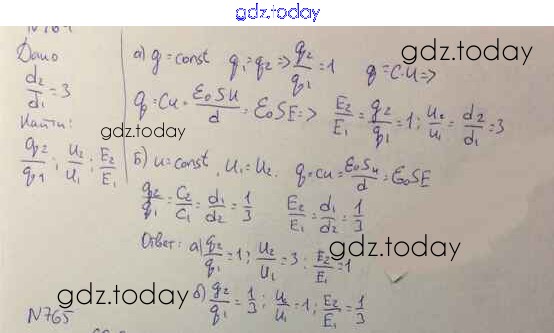 gdz.today
Дано
d₂/d₁ = 3
Найти:
q₂/q₁ ; U₂/U₁ ; E₂/E₁
а) q = const q₁ = q₂ => q₂/q₁ = 1 q = C·U =>
gdz.today
q = CU = ε₀SU/d = ε₀SE => E₂/E₁ = q₂/q₁ = 1 ; U₂/U₁ = d₂/d₁ = 3
gdz.today
б) U = const , U₁ = U₂ q = CU = ε₀SU/d = ε₀SE
q₂/q₁ = C₂/C₁ = d₁/d₂ = 1/3 E₂/E₁ = d₁/d₂ = 1/3
Ответ: а) q₂/q₁ = 1 ; U₂/U₁ = 3 ; E₂/E₁ = 1
gdz.today
б) q₂/q₁ = 1/3 ; U₂/U₁ = 1 ; E₂/E₁ = 1/3
gdz.today
N765